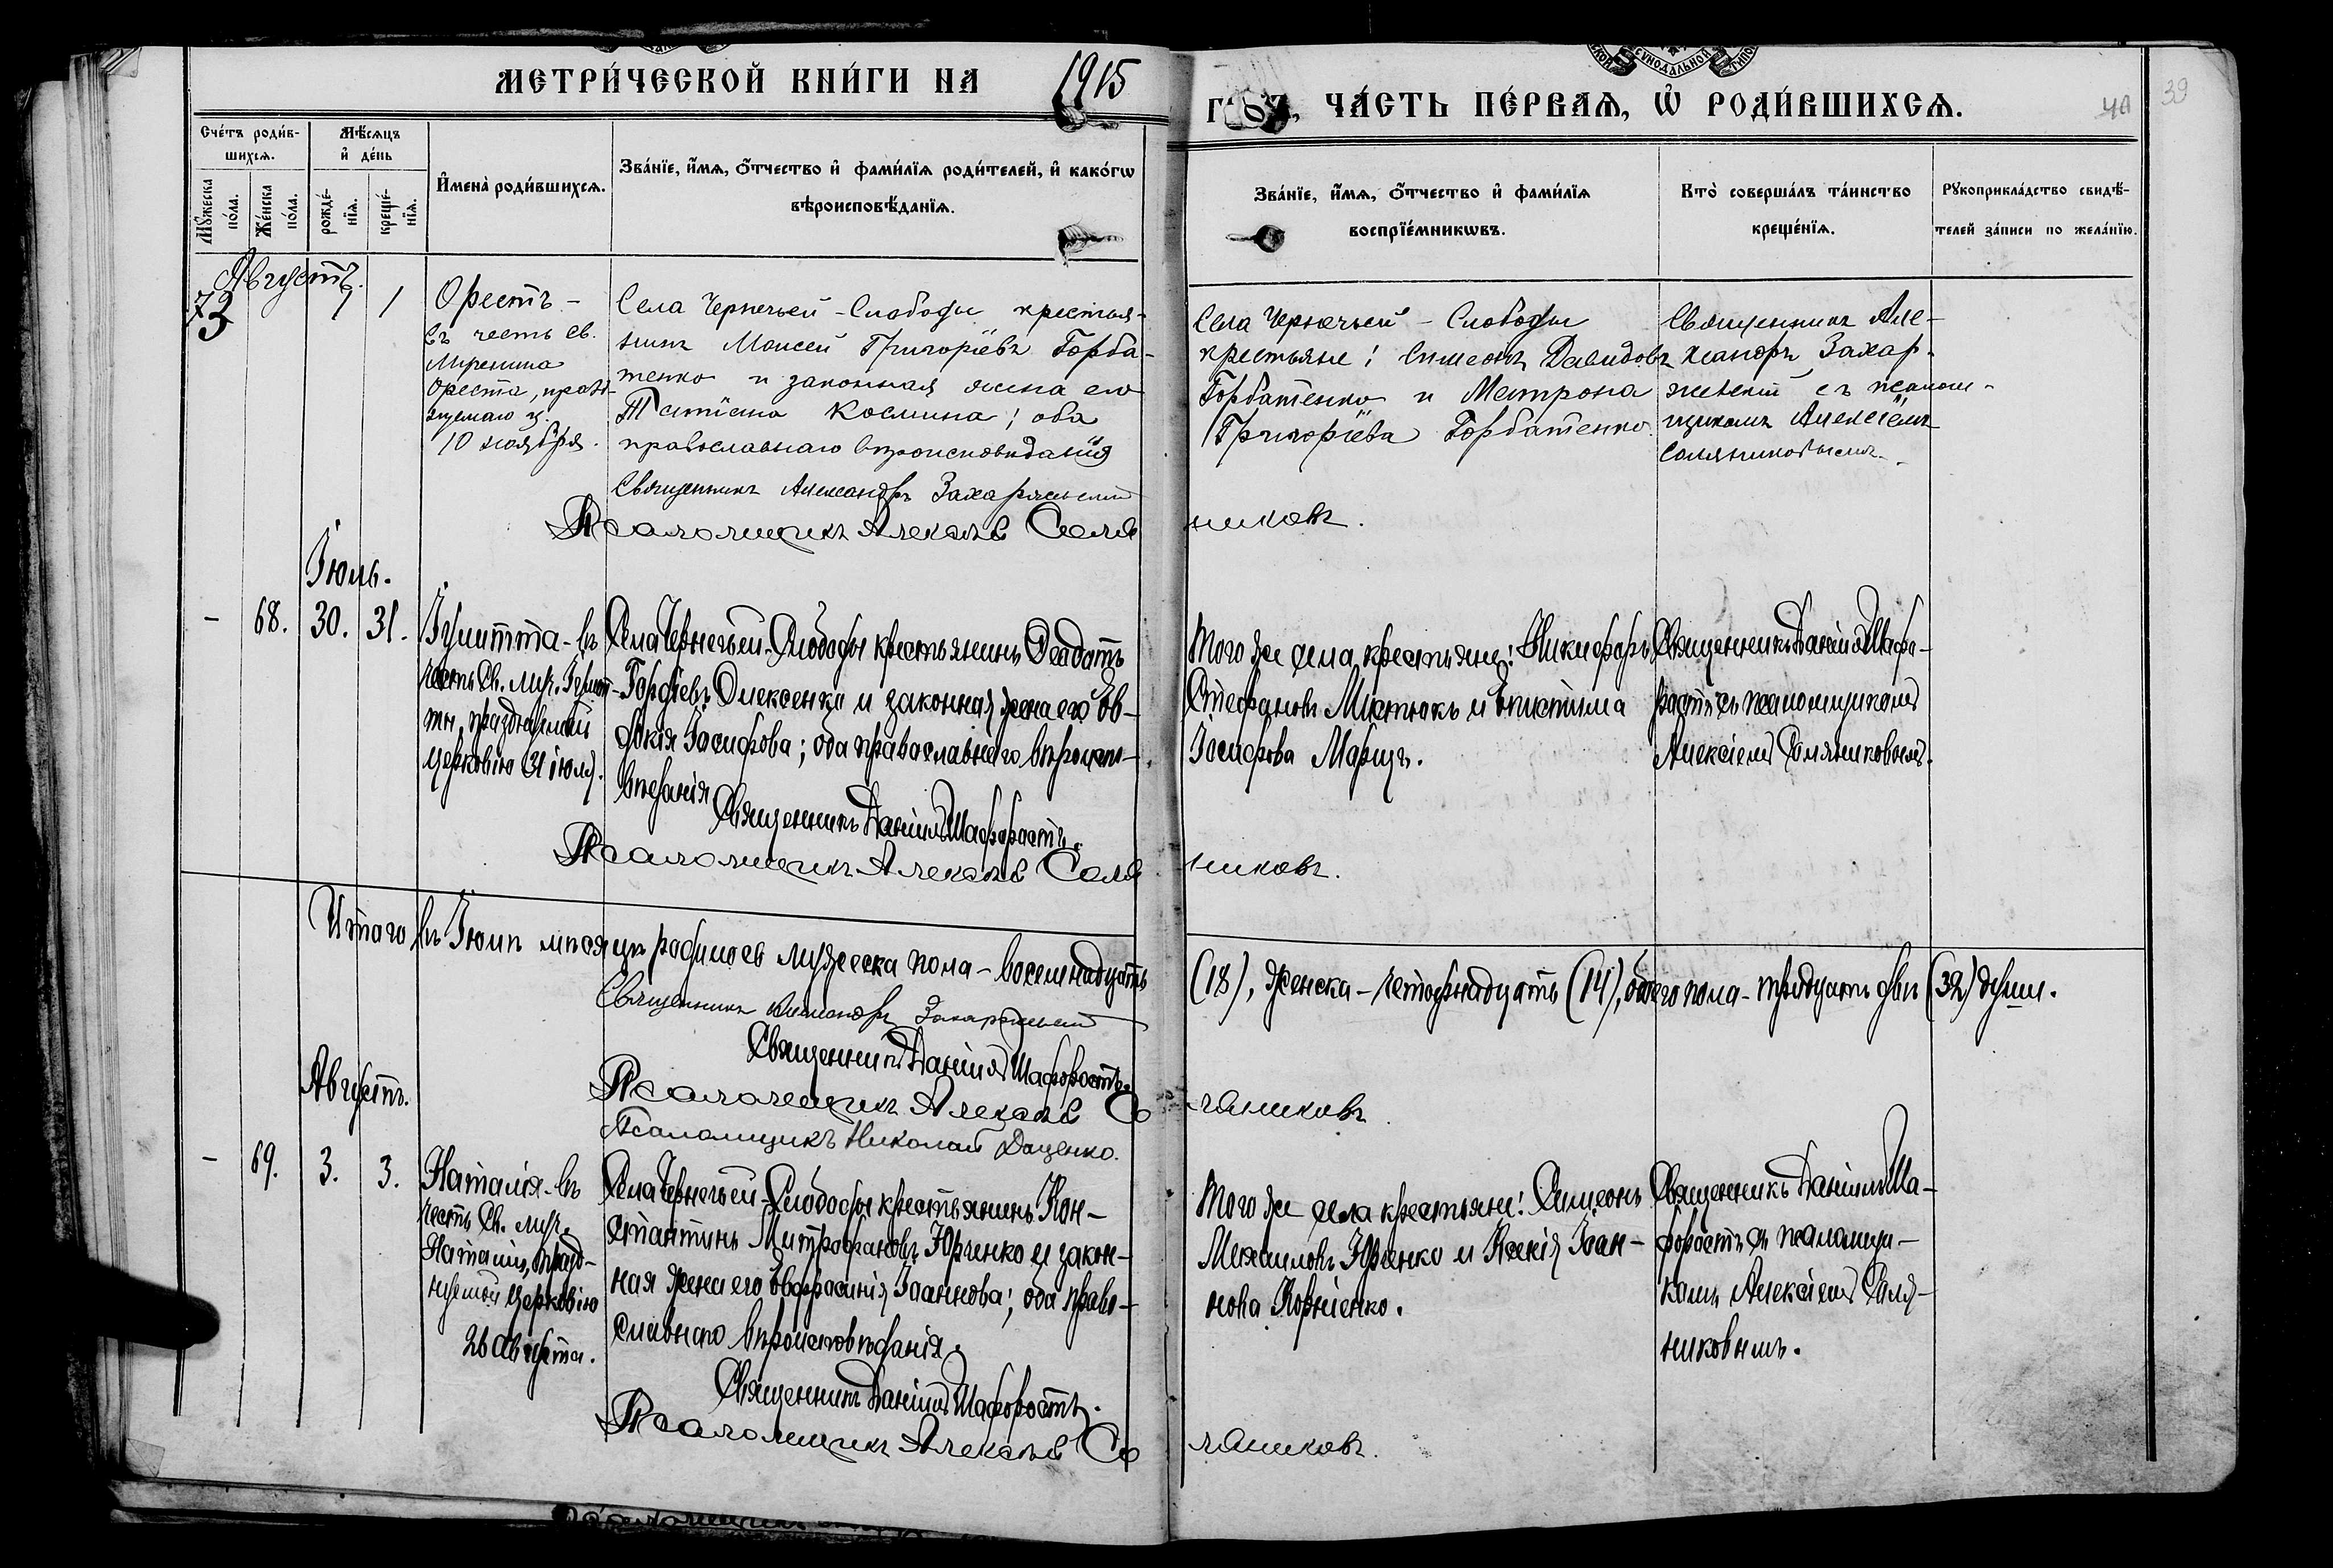 МЕТРИ́ЧЕСКОЙ КНИ́ГИ НА 1915
ЧА́СТЬ ПЕ́РВАѦ, Ѡ҆ РОДИ́ВШИХСѦ.
39
Сче́тъ роди́в-
шихсѧ.
Мѣ́сѧцъ
и҆ де́нь
Мꙋ́жеска
по́ла.
Же́нска
по́ла.
рожде́-
нїѧ.
креще́-
нїѧ.
И҆мена̀ роди́вшихсѧ.
Зва́нїе, и҆́мѧ, ѻ҆́тчество и҆ фами́лїѧ роди́телей, и҆ како́гѡ
вѣроисповѣ́данїѧ.
Зва́нїе, и҆́мѧ, ѻ҆́тчество и҆ фами́лїѧ
воспрїе́мникѡвъ.
Кто̀ соверша́лъ та́инство
креще́нїѧ.
Рꙋкоприкла́дство свидѣ́-
телей за́писи по жела́нїю.
Августъ.
73
1
1
Орестъ -
въ честь св.
Мученика
Ореста, празд-
10 ноября.
Села Чернечьей - Слободы крестья-
нинъ Моисей Григоріевъ Горба-
тенко и законная жена его
Татіана Космина; оба
православнаго вѣроисповѣданія
Священникъ Александръ Захаржевскій
Псаломщикъ Алексѣй Соля
Села Чернечьей - Слободы
крестьяне: Симеонъ Давидовъ
Горбатенко и Матрона
Григоріева Горбатенко.
Священникъ Але-
ксандръ Захар-
жевскій съ псалом-
щикомъ Алексіемъ
Соляниковымъ.
никовъ.
Іюль.
-
68.
30.
31.
Іулитта - въ
честь Св. муч. Іулит-
ты, празднуемой
церковію 31 іюля.
Села Чернечьей - Слободы крестьянинъ Феодотъ
Гордіевъ Олексенко и законная жена его Ев-
докія Іосифова; оба православнаго вѣроиспо-
вѣданія
Священникъ Даніилъ Шафоростъ.
Псаломщикъ Алексѣй Соля
Того же села крестьяне: Никифоръ
Стефановъ Миктюкъ и Епистима
Іосифова Марищъ.
Священникъ Даніилъ Шафо-
ростъ съ псаломщикомъ
Алексіемъ Соляниковымъ.
никовъ.
Итого въ Іюлѣ мѣсяцѣ родилось мужеска пола - восемнадцать
(18), женска - четырнадцать (14), обоего пола - тридцать двѣ (32) души.
Священникъ Александръ Захаржевскій
Священникъ Даніилъ Шафоростъ.
Псаломщикъ Алексѣй Со
ляниковъ
Псаломщикъ Николай Даценко.
Августъ.
-
69.
3.
3.
Наталія - въ
честь Св. муч.
Наталіи, празд-
нуемой церковію
26 Августа.
Села Чернечьей - Слободы крестьянинъ Кон-
стантинъ Митрофановъ Юрченко и закон-
ная жена его Евфросинія Іоаннова; оба право-
славнаго вѣроисповѣданія.
Священникъ Даніилъ Шафоростъ.
Псаломщикъ Алексѣй Со
Того же села крестьяне: Симеонъ
Михаиловъ Юрченко и Ксенія Іоан-
нова Корніенко.
Священникъ Даніилъ Ша-
форостъ съ псаломщи-
комъ Алексіемъ Соля-
никовымъ.
ляниковъ.